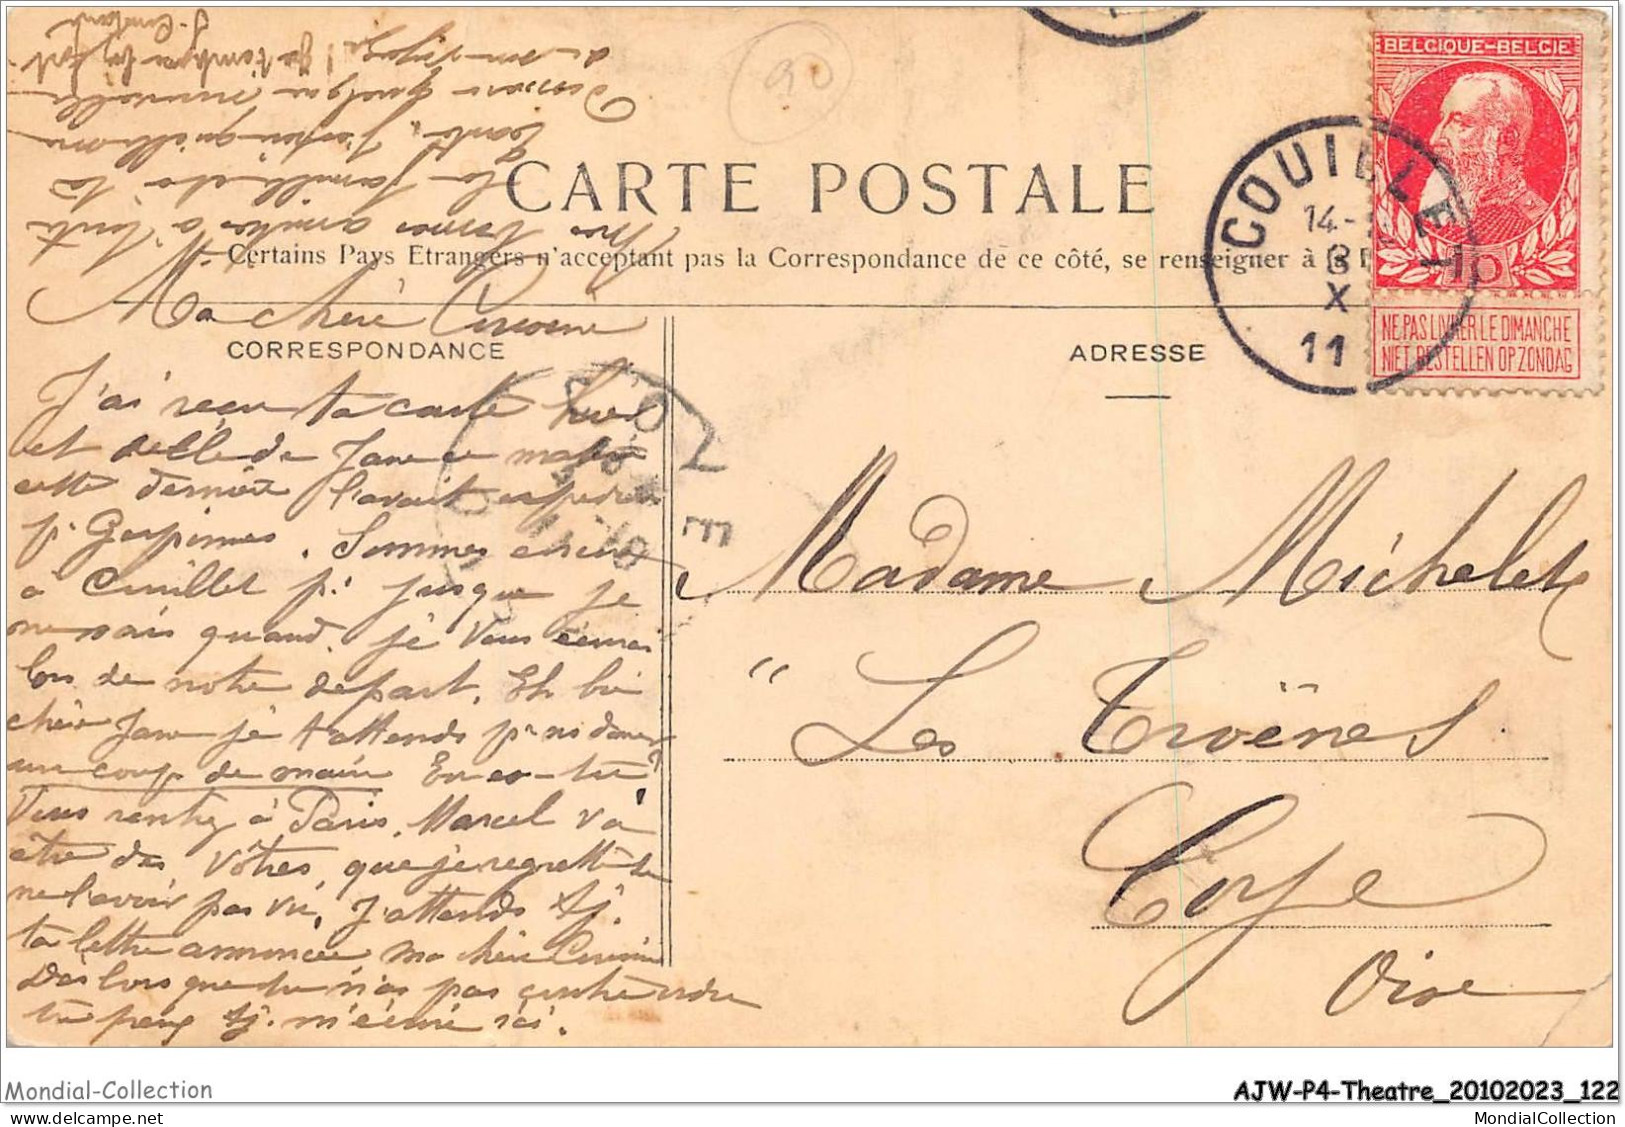 BELGIQUE-BELGIE
10
NE PAS LIVRER LE DIMANCHE
NIET BESTELLEN OP ZONDAG
COUILLET
14-
8
X
11
90
CARTE POSTALE
Certains Pays Etrangers n'acceptant pas la Correspondance de ce côté, se renseigner à
CORRESPONDANCE
ADRESSE
Ma chère Cousine
J'ai reçu ta carte hier
et celle de Jane ce matin
cette dernière l'avait
p. Gerpinnes. Sommes encore
à Couillet p. jusque je
ne sais quand. je vous écrirai
lors de notre départ. Eh bien
chère Jane je t'attends p. ns donner
un coup de main En es-tu?
Vous rentrez à Paris, Marcel va
être des vôtres, que je regrette de
ne l'avoir pas vu, J'attends
ta lettre annoncée ma chère Cousine
Dès lors que tu n'as pas
tu peux m'écrire ici.
Mes bonnes amitiés à toute
la famille et à toi
à son voyage!
Madame Michelet
"Les Troënes
Coye
Oise
Mondial-Collection
AJW-P4-Theatre_20102023_122
MondialCollection